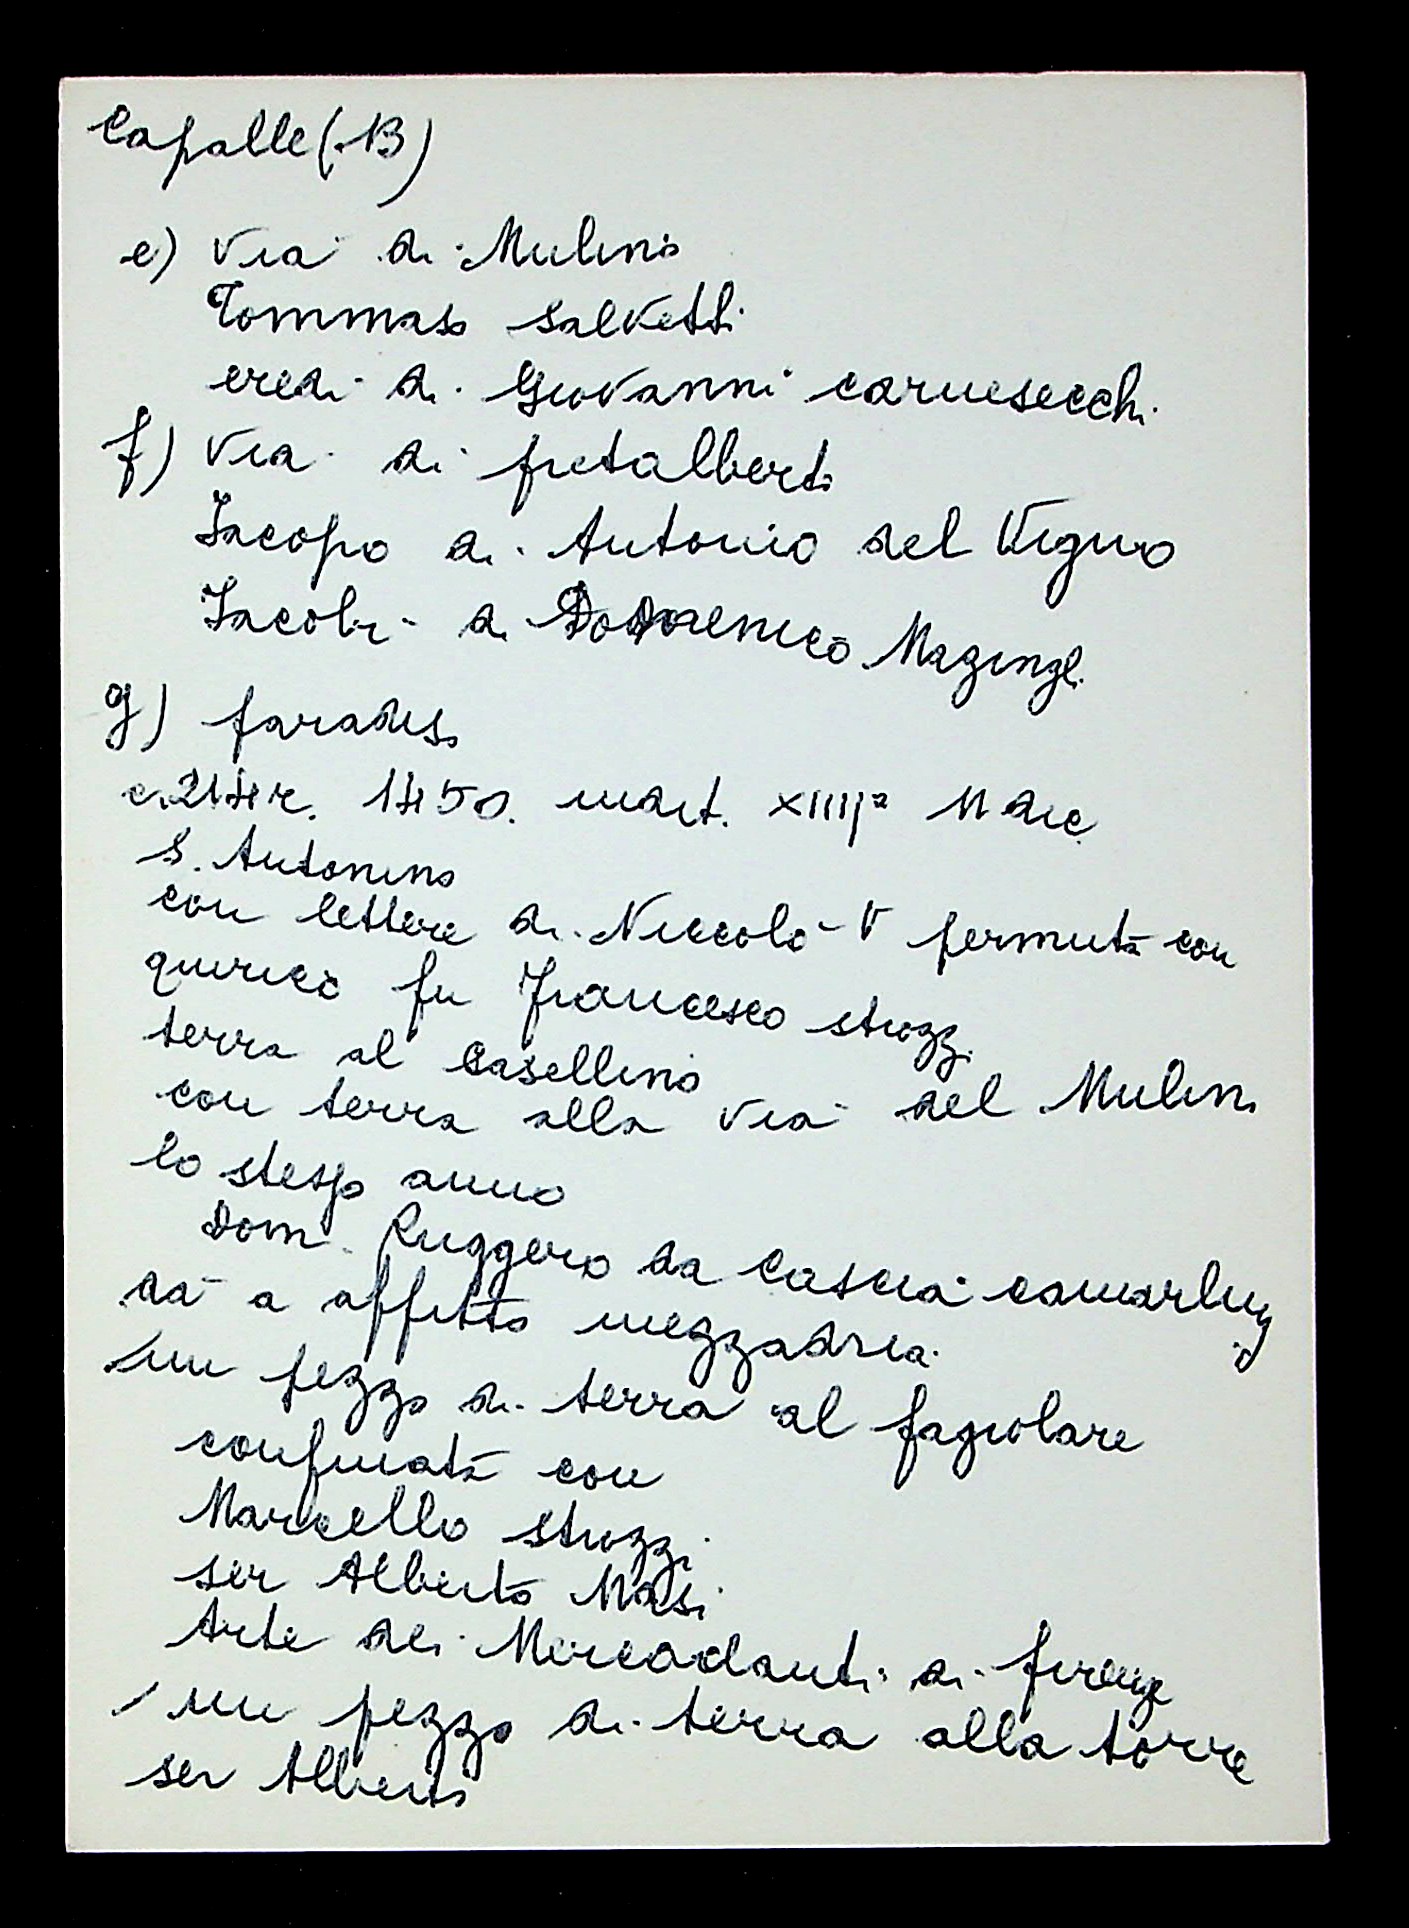 Capalle (.13)
e) Via di Mulino
Tommaso Salvetti
eredi di Giovanni Carnesecchi
f) Via di pietalberti
Jacopo di Antonio del Vigno
Jacobi di Domenico Mazinghi
g) paradiso
c.214r. 1450. indict. XIIIIª 11 dic
S. Antonino
con lettere di Niccolò V permuta con
quirico fu Francesco strozzi
terra al Casellino
con terra alla via del Mulino
lo stesso anno
Dom. Ruggero da Cascia camarling
dà a affitto mezzadria
/ un pezzo di terra al fagiolare
confinata con
Marcello strozzi
ser Alberto Masi
Arte dei Mercadanti di firenze
/ un pezzo di terra alla torre
ser Alberto